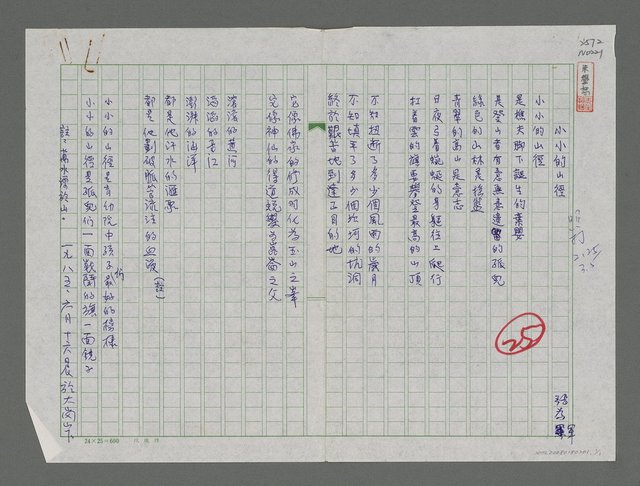 小小的山徑
小小的山徑
是樵夫腳下誕生的棄嬰
是登山者有意無意遺留的孤兒
綠色的山林是搖籃
青翠的高山是意志
日夜弓着蜿蜒的身軀往上爬行
扛着雲的旗要攀登最高的山頂
不知扭斷了多少個風雨的歲月
不知填平了多少個坎坷的坑洞
終於艱苦地到達了目的地
它像佛家的修成可化為玉山之峯
它像神仙的得道蛻變為崑崙之父
滾滾的黃河
滔滔的長江
澎湃的海洋
都是他汗水的滙聚
都是他割破脈管流注的血液（註）
小小的山徑是育幼院中孩子們最好的榜樣
小小的山徑是孤兒們一面戰鬪的旗一面鏡子
註：萬水源於山。
一九八五、六月十六晨於大崗山下
25
24×25=600